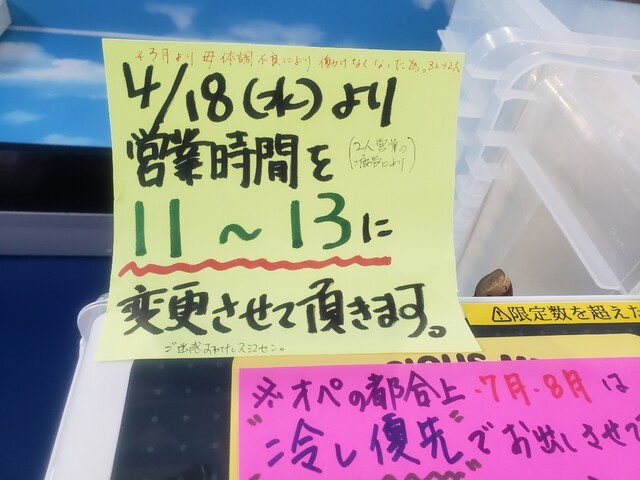 ※3月より母体調不良により働けなくなった為。3人→2人
4/18(水)より
営業時間を
(2人営業の
ご都合により)
11～13に
変更させて頂きます。
ご迷惑おかけしスミマセン。
⚠限定数を超えた
※オペの都合上・7月・8月は
"冷し優先"でお出しさせて